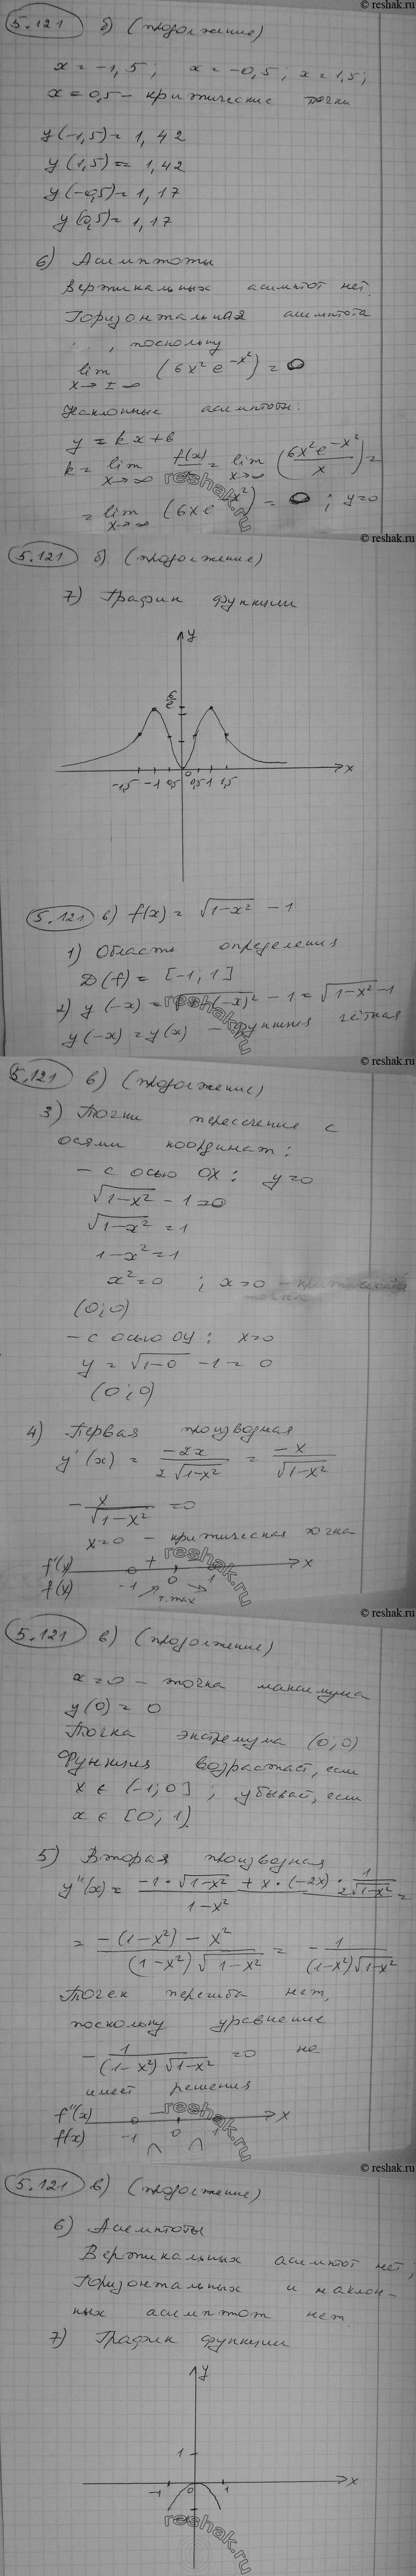 ©reshak.ru
5.121 б) (продолжение)
x = -1,5; x = -0,5; x = 1,5;
x = 0,5 - критические точки
y(-1,5) = 1,42
y(1,5) = 1,42
y(-0,5) = 1,17
y(0,5) = 1,17
6) Асимптоты
Вертикальных асимптот нет.
Горизонтальная асимптота
, поскольку
lim x→±∞ (6x²e^{-x²}) = 0
Наклонные асимптоты:
y = kx+b
k = lim x→∞ f(x)/x = lim x→∞ (6x²e^{-x²}/x) =
= lim x→∞ (6xe^{-x²}) = 0; y=0
reshak.ru
©reshak.ru
5.121 б) (продолжение)
7) График функции
y
6/e
-1,5 -1 0,5 0 0,5 1 1,5 x
5.121 в) f(x) = √(1-x²) - 1
1) Область определения
D(f) = [-1; 1]
2) y(-x) = √(1-(-x)²) - 1 = √(1-x²) - 1
y(-x) = y(x) - функция чётная
reshak.ru
©reshak.ru
5.121 в) (продолжение)
3) Точки пересечения с
осями координат:
- с осью OX: y=0
√(1-x²) - 1 = 0
√(1-x²) = 1
1-x² = 1
x² = 0; x=0
(0;0)
- с осью OY: x=0
y = √(1-0) - 1 = 0
(0;0)
4) Первая производная
y'(x) = -2x/(2√(1-x²)) = -x/√(1-x²)
-x/√(1-x²) = 0
x=0 - критическая точка
f'(x) + x
f(x) -1 0 1
т.max
reshak.ru
©reshak.ru
5.121 в) (продолжение)
x=0 - точка максимума
y(0) = 0
Точка экстремума (0;0)
Функция возрастает, если
x ∈ (-1;0]; убывает, если
x ∈ [0;1)
5) Вторая производная
y''(x) = (-1·√(1-x²) + x·(-2x)·1/(2√(1-x²)))/(1-x²) =
= (-(1-x²) - x²)/((1-x²)√(1-x²)) = -1/((1-x²)√(1-x²))
Точек перегиба нет,
поскольку уравнение
-1/((1-x²)√(1-x²)) = 0 не
имеет решения
f''(x) - - x
f(x) -1 0 1
reshak.ru
©reshak.ru
5.121 в) (продолжение)
6) Асимптоты
Вертикальных асимптот нет;
Горизонтальных и наклон-
ных асимптот нет.
7) График функции
y
1
-1 0 1 x
reshak.ru